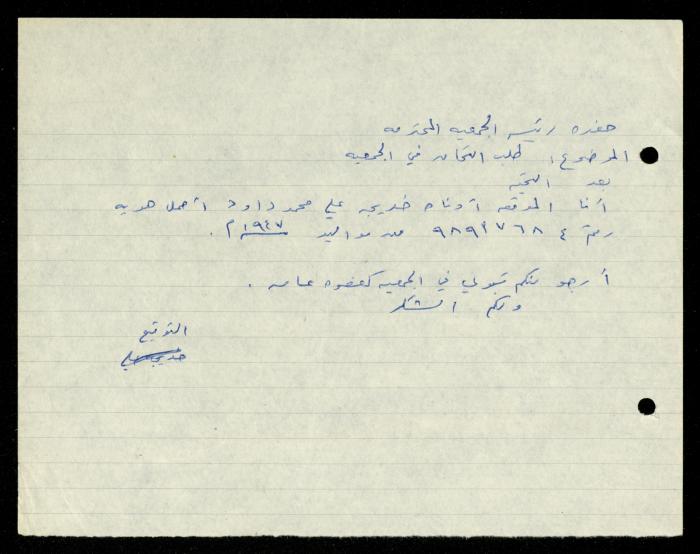 حضرة رئيسة الجمعيه المحترمه
الموضوع: طلب التحاق في الجمعيه
بعد التحيه
أنا الموقعه أدناه خديجه علي محمد داود أحمل هويه
رقم ٩٨٩٢٧٦٨ ٤ من مواليد ١٩٤٧م.
أرجو منكم قبولي في الجمعيه كعضوه عامه.
ولكم الشكر
التوقيع
خديجه علي